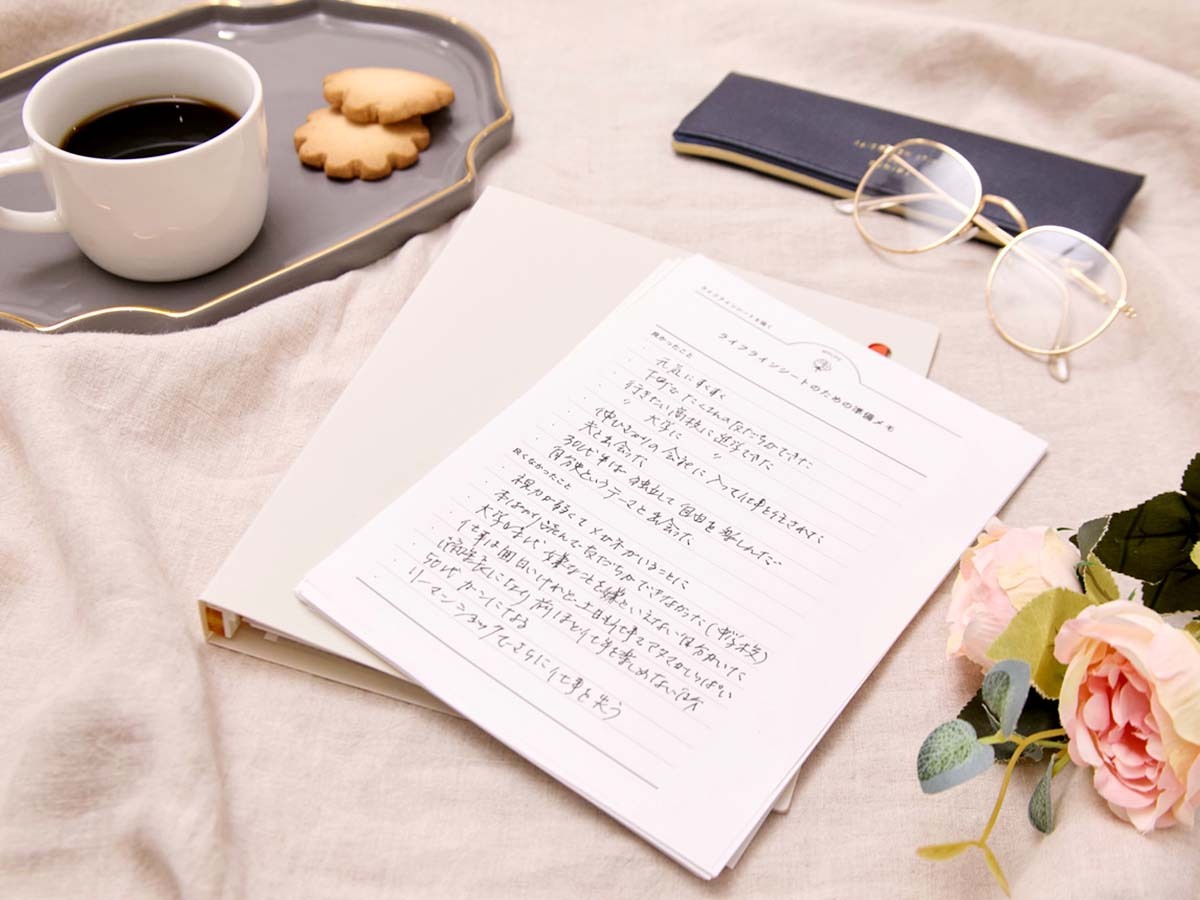 ライフラインシートを描く
ライフラインシートのための準備メモ
良かったこと
・元気にすくすく
・下町でたくさんの友だちができた
・行きたい高校に進学できた
・〃 大学に 〃
・伸びざかりの会社に入って仕事を任された
・夫と出会った
・30代半ばは独立して自由を楽しんだ
・自分史というテーマと出会った
良くなかったこと
・視力が弱くてメガネがいることに
・本ばかり読んで友だちができなかった(中学校)
・大学時代、嫌なことを嫌といえない自分がいた
・仕事は面白いけれど土日も仕事でアタマがいっぱい
になり前ほど仕事を楽しめない
・50代 ガンになる
・リーマンショックでさらに仕事を失う